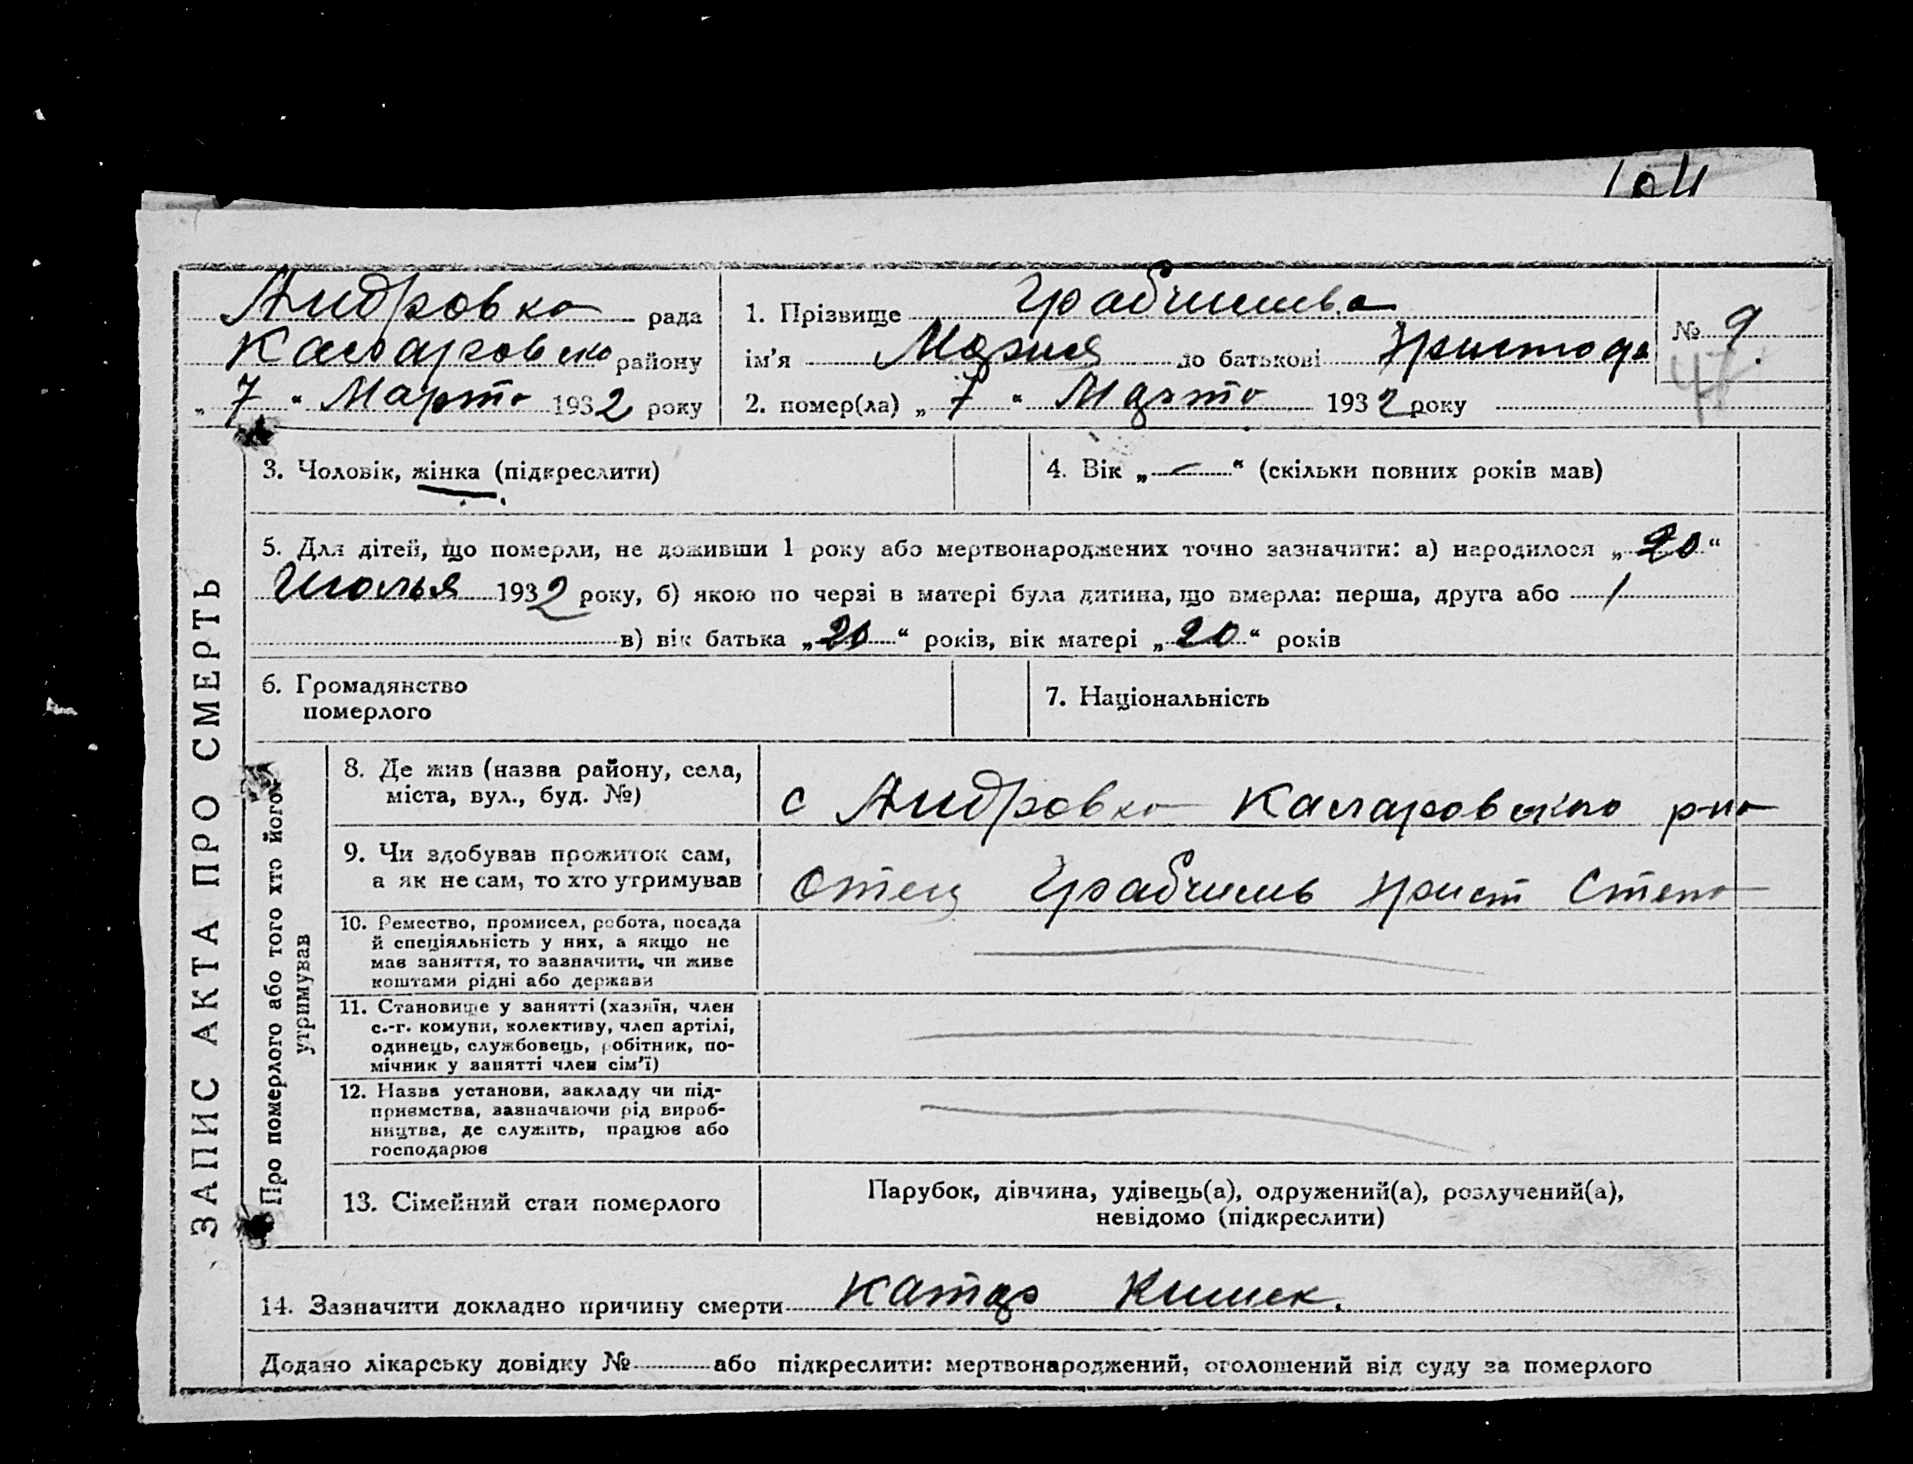 104
Андровка рада
Каларовско району
„ 7 “ Марта 1932 року
1. Прізвище Грабчилева
ім’я Мария по батькові Христода
2. помер(ла) „ 7 “ Марта 1932 року
№ 9.
47
ЗАПИС АКТА ПРО СМЕРТЬ
3. Чоловік, жінка (підкреслити)
4. Вік „ — “ (скільки повних років мав)
5. Для дітей, що померли, не доживши 1 року або мертвонароджених точно зазначити: а) народилося „ 20 “
Июлья 1932 року, б) якою по черзі в матері була дитина, що вмерла: перша, друга або 1
в) вік батька „ 20 “ років, вік матері „ 20 “ років
6. Громадянство
померлого
7. Національність
Про померлого або того хто його
утримував
8. Де жив (назва району, села,
міста, вул., буд. №)
с Андровка Каларовского р-на
9. Чи здобував прожиток сам,
а як не сам, то хто утримував
Отец Христ Степа
10. Ремество, промисел, робота, посада
й спеціяльність у них, а якщо не
має заняття, то зазначити, чи живе
коштами рідні або держави
11. Становище у занятті (хазяїн, член
с.-г. комуни, колективу, член артілі,
одинець, службовець, робітник, по-
мічник у занятті член сім’ї)
12. Назва установи, закладу чи під-
приємства, зазначаючи рід вироб-
ництва, де служить, працює або
господарює
13. Сімейний стан померлого
Парубок, дівчина, удівець(а), одружений(а), розлучений(а),
невідомо (підкреслити)
14. Зазначити докладно причину смерти Катар Кишек.
Додано лікарську довідку № або підкреслити: мертвонароджений, оголошений від суду за померлого